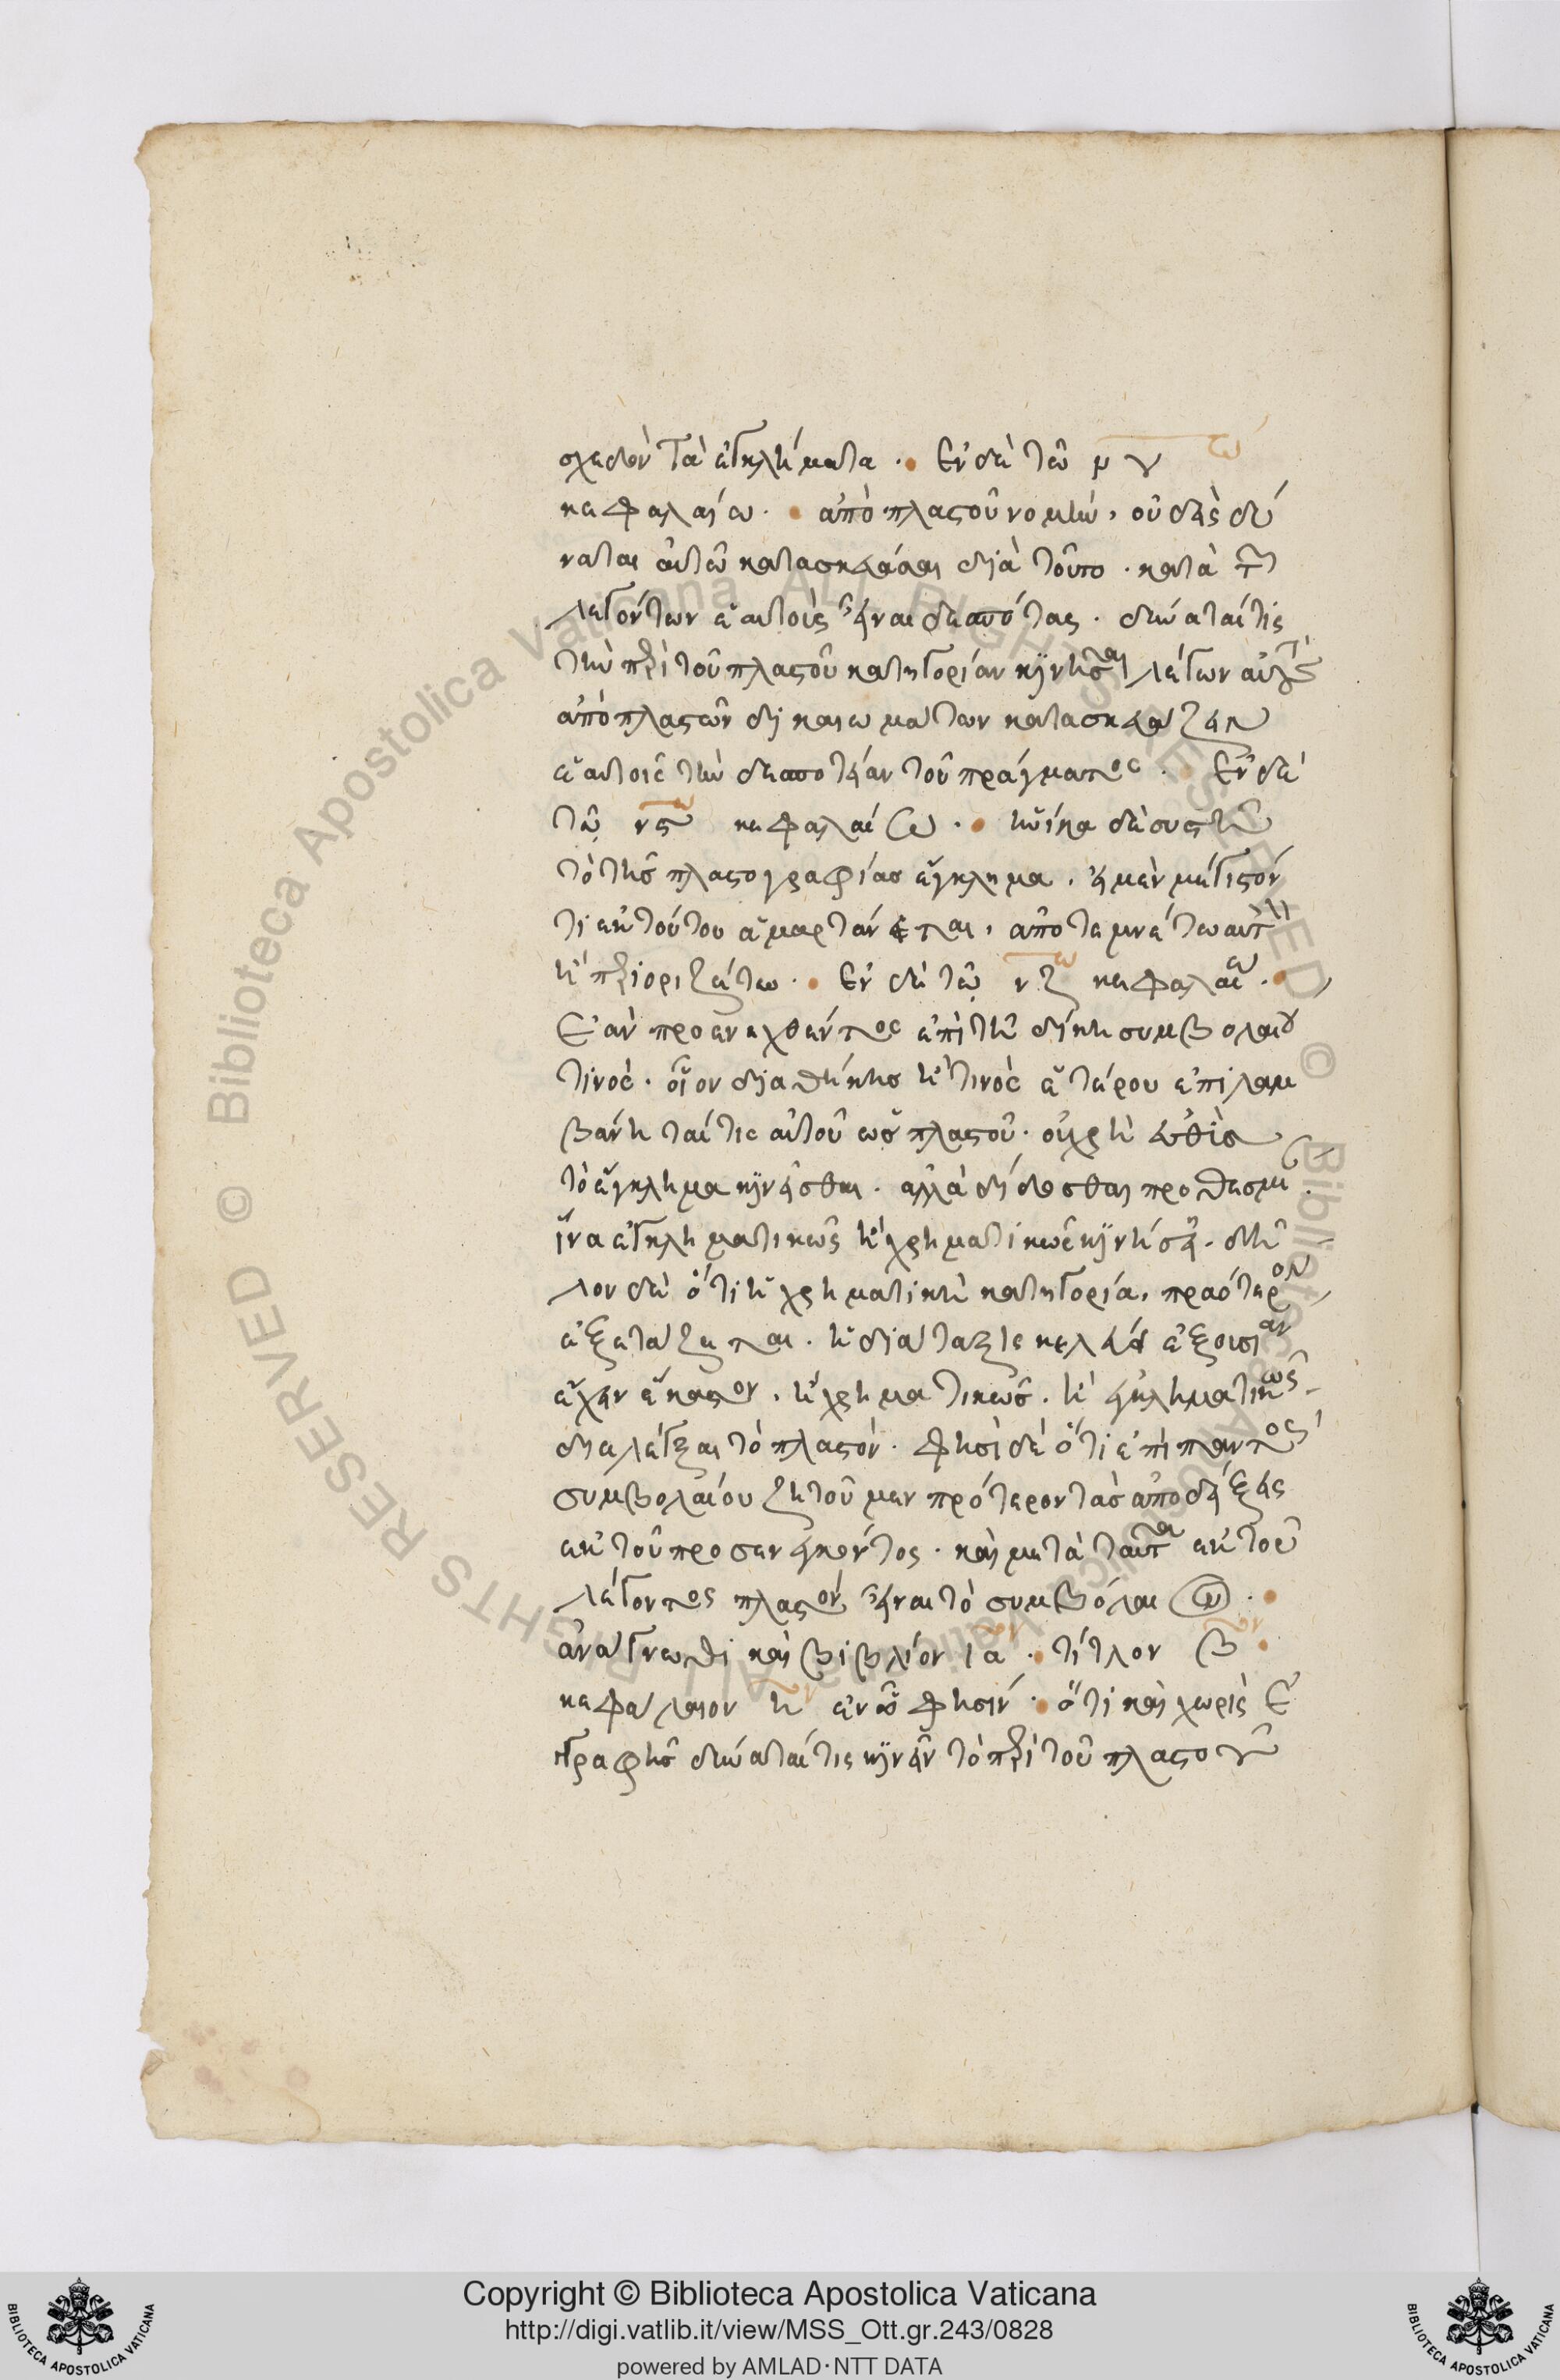 σχεδὸν τὰ ἐγκλήματα · Ἐν δὲ τῶ μγ ω
κεφαλαίω · ἀπὸ πλαστοῦ νομὴν, οὐδεὶς δύ
ναται αὐτῶ κατασκευάσαι διὰ τοῦτο · κατὰ τῶν
λεγόντων ἑαυτοὺς εἶναι δεσπότας · δύναταί τις
τὴν περὶ τοῦ πλαστοῦ κατηγορίαν κινῆσαι λέγων αὐτοὺς
ἀπὸ πλαστῶν δικαιωμάτων κατασκευάζειν
ἑαυτοῖς τὴν δεσποτείαν τοῦ πράγματος · Ἐν δὲ
τῶ νϛ ω κεφαλαίω · ἡνίκα δὲ συστῆ
τὸ τῆς πλαστογραφίας ἔγκλημα, εἰ μὲν μέγιστόν
τι ἐκ τούτου ἁμαρτάνεται, ἀποτεμνέτω αὐτὸ
ἢ περιοριζέτω · Ἐν δὲ τῶ νζ ω κεφαλαίω ·
Ἐὰν προενεχθέντος ἐπὶ τῆ δίκη συμβολαίου
τινὸς · οἷον διαθήκης ἢ τινὸς ἑτέρου ἐπιλαμ
βάνηταί τις αὐτοῦ ὡς πλαστοῦ · οὐ χρὴ εὐθὺς
τὸ ἔγκλημα κινεῖσθαι · ἀλλὰ δίδοσθαι προθεσμί
ἵνα ἐγκληματικῶς ἢ χρηματικῶς κινήση · δῆ
λον δὲ ὅτι ἡ χρηματικὴ κατηγορία, πραότερον
ἐξετάζεται · ἡ διάταξις κελεύει ἐξουσίαν
ἔχειν ἕκαστον, ἢ χρηματικῶς · ἢ ἐγκληματικῶς
διελέγξαι τὸ πλαστόν · φησὶ δὲ ὅτι ἐπὶ παντὸς
συμβολαίου ζητοῦμεν πρότερον τὰς ἀποδείξεις
ἐκ τοῦ προσενεγκόντος · καὶ μετὰ ταῦτα ἐκ τοῦ
λέγοντος πλαστὸν εἶναι τὸ συμβόλαιον ·
ἀνάγνωθι καὶ βιβλίον ια ον · τίτλον β ον ·
κεφάλαιον η ον ἐν ὧ φησὶν · ὅτι καὶ χωρὶς ἐγ
γραφῆς δύναταί τις κινεῖν τὸ περὶ τοῦ πλαστοῦ
Copyright © Biblioteca Apostolica Vaticana
http://digi.vatlib.it/view/MSS_Ott.gr.243/0828
powered by AMLAD·NTT DATA